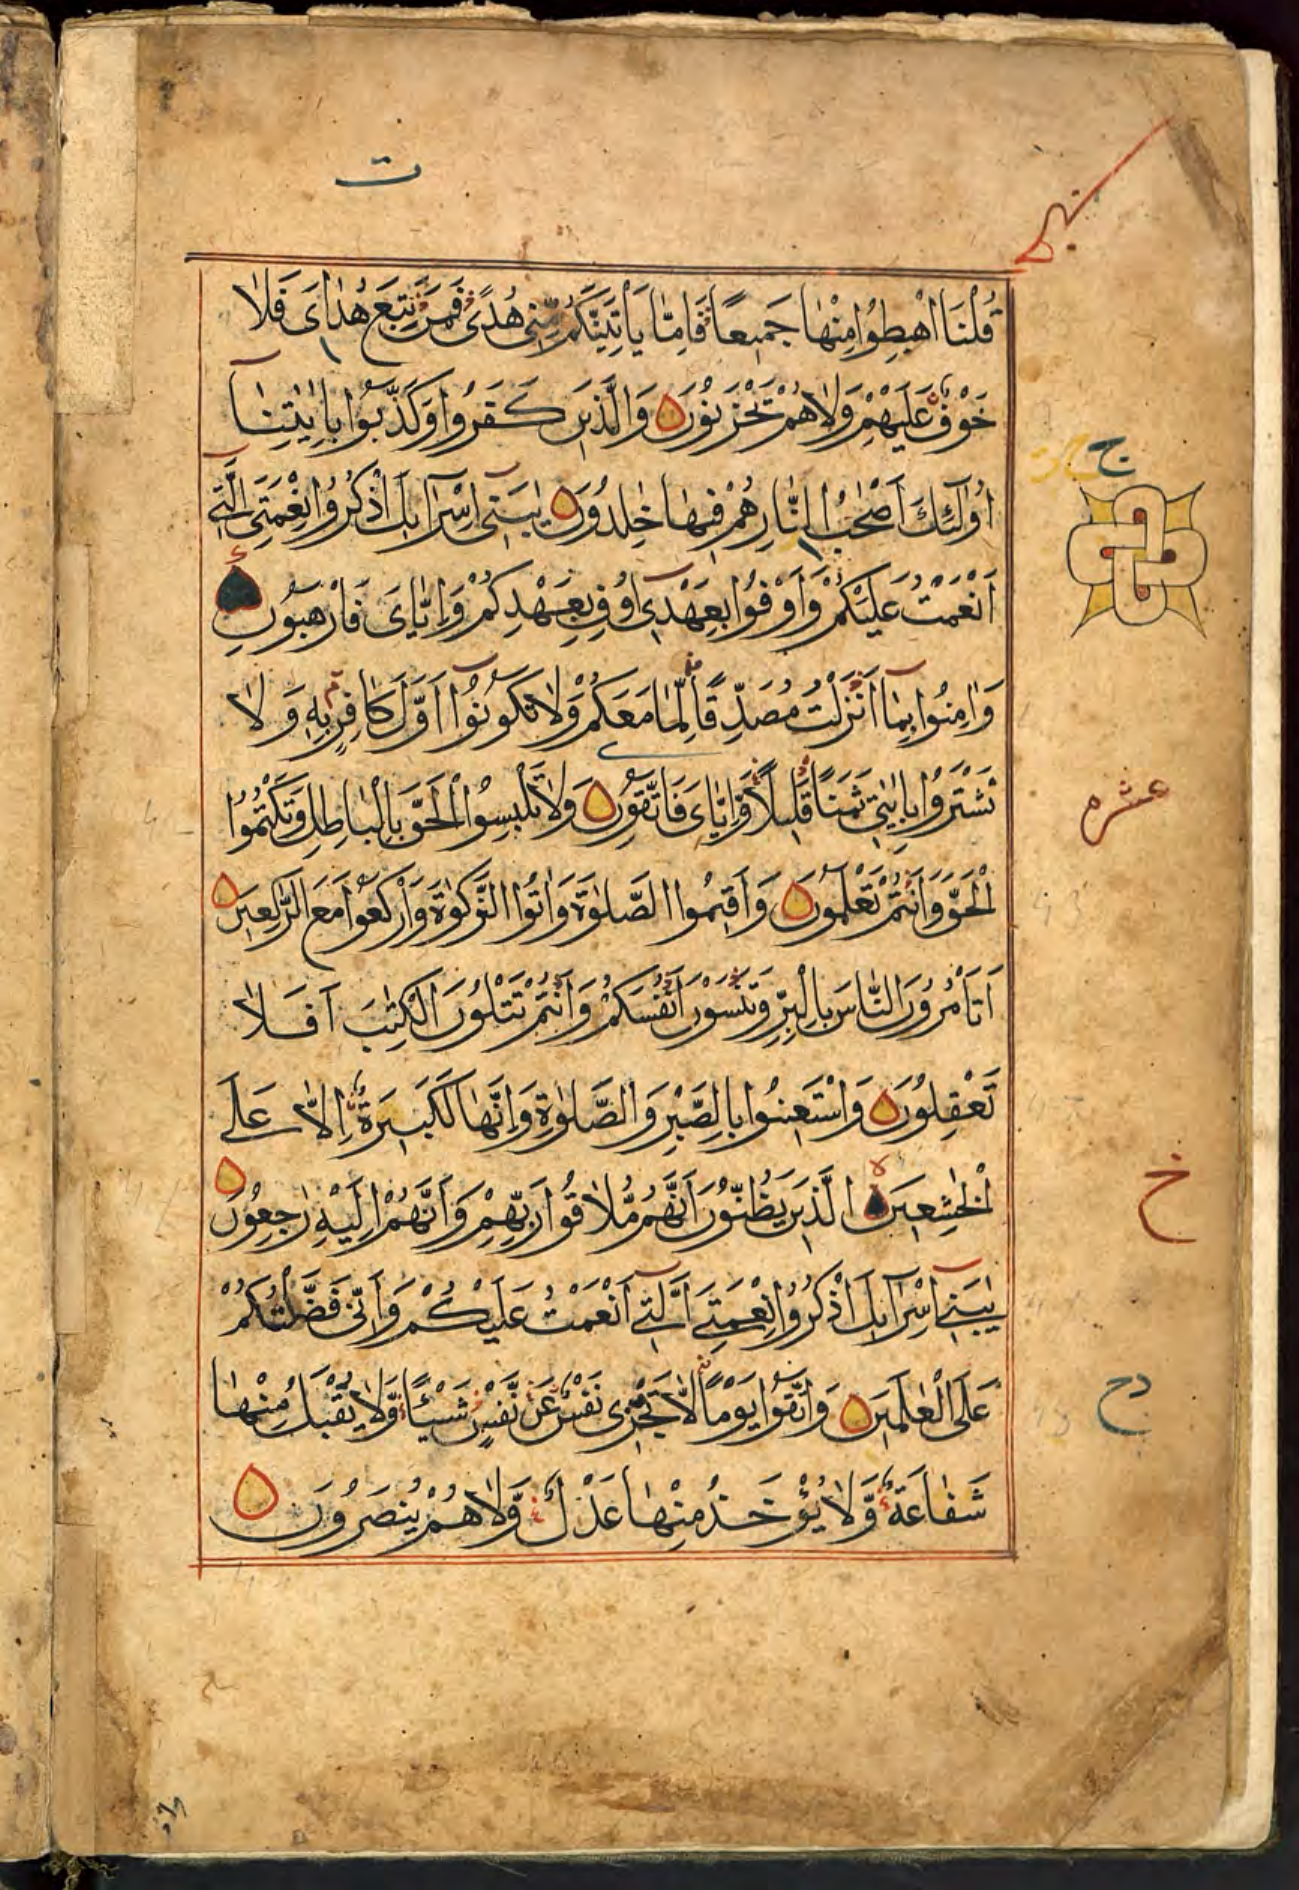 ت
قُلْنَا اهْبِطُوا مِنْهَا جَمِيعًا فَاِمَّا يَاْتِيَنَّكُمْ مِّنِّي هُدًى فَمَنْ تَبِعَ هُدَايَ فَلَا
خَوْفٌ عَلَيْهِمْ وَلَا هُمْ يَحْزَنُونَ وَالَّذِينَ كَفَرُوا وَكَذَّبُوا بِاٰيٰتِنَا
ج
اُولٰٓئِكَ اَصْحٰبُ النَّارِ هُمْ فِيهَا خٰلِدُونَ يٰبَنِيٓ اِسْرَآئِلَ اذْكُرُوا نِعْمَتِيَ الَّتِيٓ
اَنْعَمْتُ عَلَيْكُمْ وَاَوْفُوا بِعَهْدِيٓ اُوفِ بِعَهْدِكُمْ وَاِيَّايَ فَارْهَبُونِ
وَاٰمِنُوا بِمَآ اَنْزَلْتُ مُصَدِّقًا لِّمَا مَعَكُمْ وَلَا تَكُونُوٓا اَوَّلَ كَافِرٍ بِهٖ وَلَا
تَشْتَرُوا بِاٰيٰتِي ثَمَنًا قَلِيلًا وَّاِيَّايَ فَاتَّقُونِ وَلَا تَلْبِسُوا الْحَقَّ بِالْبَاطِلِ وَتَكْتُمُوا
عشرم
الْحَقَّ وَاَنْتُمْ تَعْلَمُونَ وَاَقِيمُوا الصَّلٰوةَ وَاٰتُوا الزَّكٰوةَ وَارْكَعُوا مَعَ الرّٰكِعِينَ
اَتَاْمُرُونَ النَّاسَ بِالْبِرِّ وَتَنْسَوْنَ اَنْفُسَكُمْ وَاَنْتُمْ تَتْلُونَ الْكِتٰبَ اَفَلَا
تَعْقِلُونَ وَاسْتَعِينُوا بِالصَّبْرِ وَالصَّلٰوةِ وَاِنَّهَا لَكَبِيرَةٌ اِلَّا عَلَى
الْخٰشِعِينَ الَّذِينَ يَظُنُّونَ اَنَّهُمْ مُّلَاقُوا رَبِّهِمْ وَاَنَّهُمْ اِلَيْهِ رٰجِعُونَ
خ
يٰبَنِيٓ اِسْرَآئِلَ اذْكُرُوا نِعْمَتِيَ الَّتِيٓ اَنْعَمْتُ عَلَيْكُمْ وَاَنِّي فَضَّلْتُكُمْ
عَلَى الْعٰلَمِينَ وَاتَّقُوا يَوْمًا لَّا تَجْزِي نَفْسٌ عَنْ نَّفْسٍ شَيْئًا وَّلَا يُقْبَلُ مِنْهَا
دح
شَفَاعَةٌ وَّلَا يُؤْخَذُ مِنْهَا عَدْلٌ وَّلَا هُمْ يُنْصَرُونَ